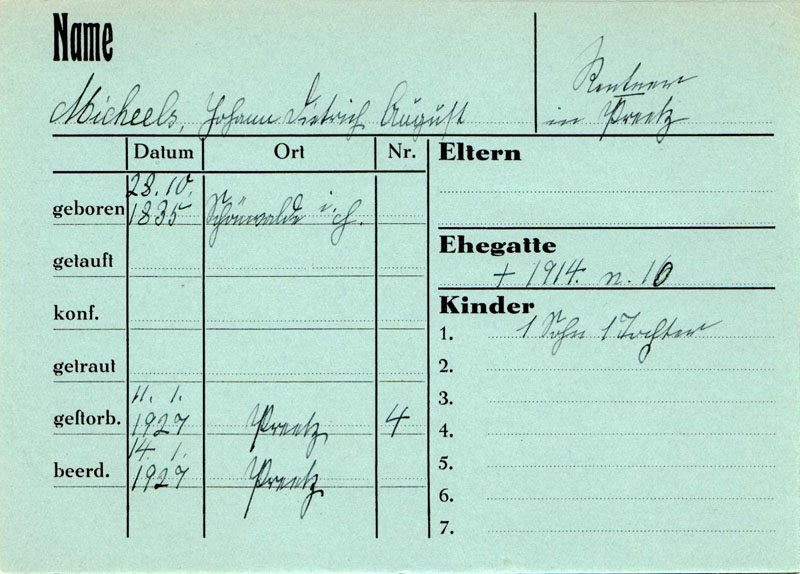 Name
Rentner
Micheels, Johann Dietrich August
in Preetz
Datum Ort Nr. Eltern
28.10.
geboren 1835 Schönwalde i. H.
getauft
Ehegatte
+ 1914. n. 10
konf.
Kinder
1. 1 Sohn 1 Tochter
getraut
2.
11. 1.
3.
gestorb. 1927 Preetz 4
4.
14. 1.
beerd. 1927 Preetz
5.
6.
7.